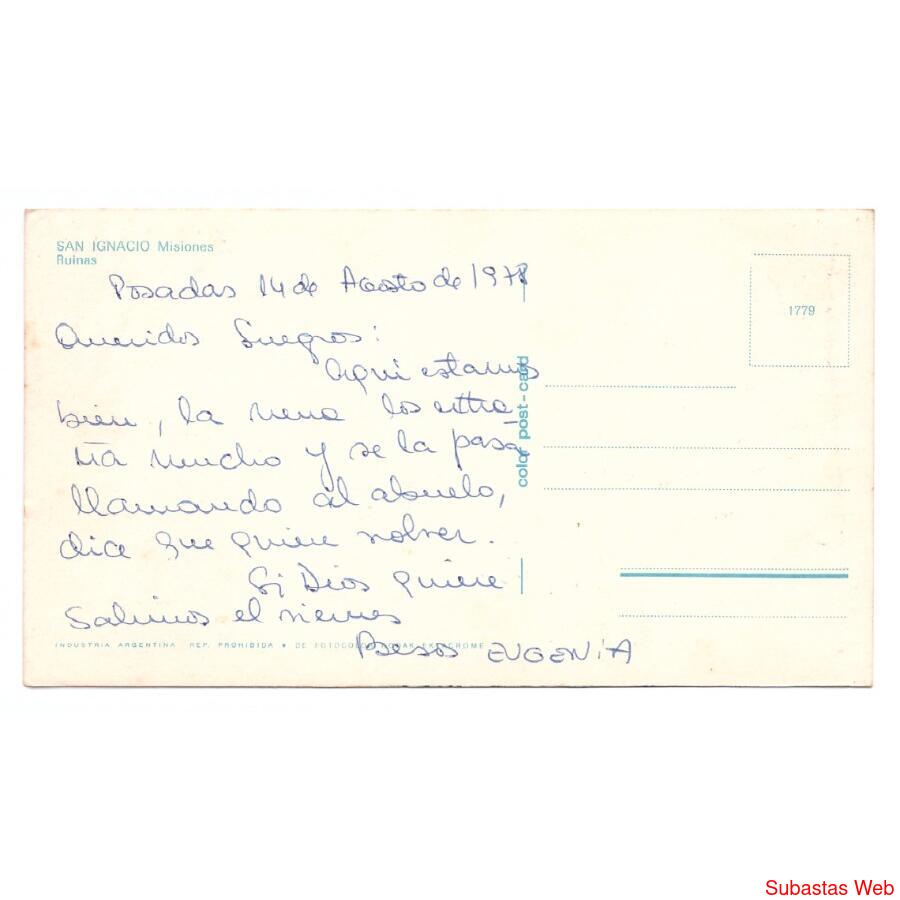 SAN IGNACIO Misiones
Ruinas
Posadas 14 de Agosto de 1978
Queridos Suegros:
Aqui estamos
bien, la nena los extra-
ña mucho y se la pasa
llamando al abuelo,
dice que quiere volver.
Si Dios quiere
Salimos el viernes
Besos EUGENiA
INDUSTRIA ARGENTINA REP. PROHIBIDA * DE FOTOCOLOR KODAK EKTACHROME
color post-card
1779
Subastas Web